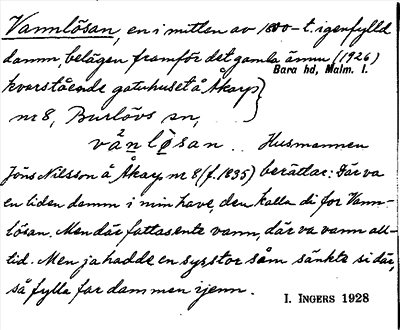 Vannlösan, en i mitten av 1800-t. igenfylld
damm, belägen framför det gamla ännu (1926)
Bara hd, Malm. l.
kvarstående gatehuset å Åkarp
nr 8, Burlövs sn,
vånlosan.. Husmannen
Jöns Nilsson å Åkarp nr 8 (f. 1835) berättar: Där va
en liden damm i min have, den kalla di for Vann-
lösan. Men där fattasente vann, där va vann all-
tid. Men ja hadde en syster såm sänkte si där,
så fylla far dammen ijenn.
I. INGERS 1928